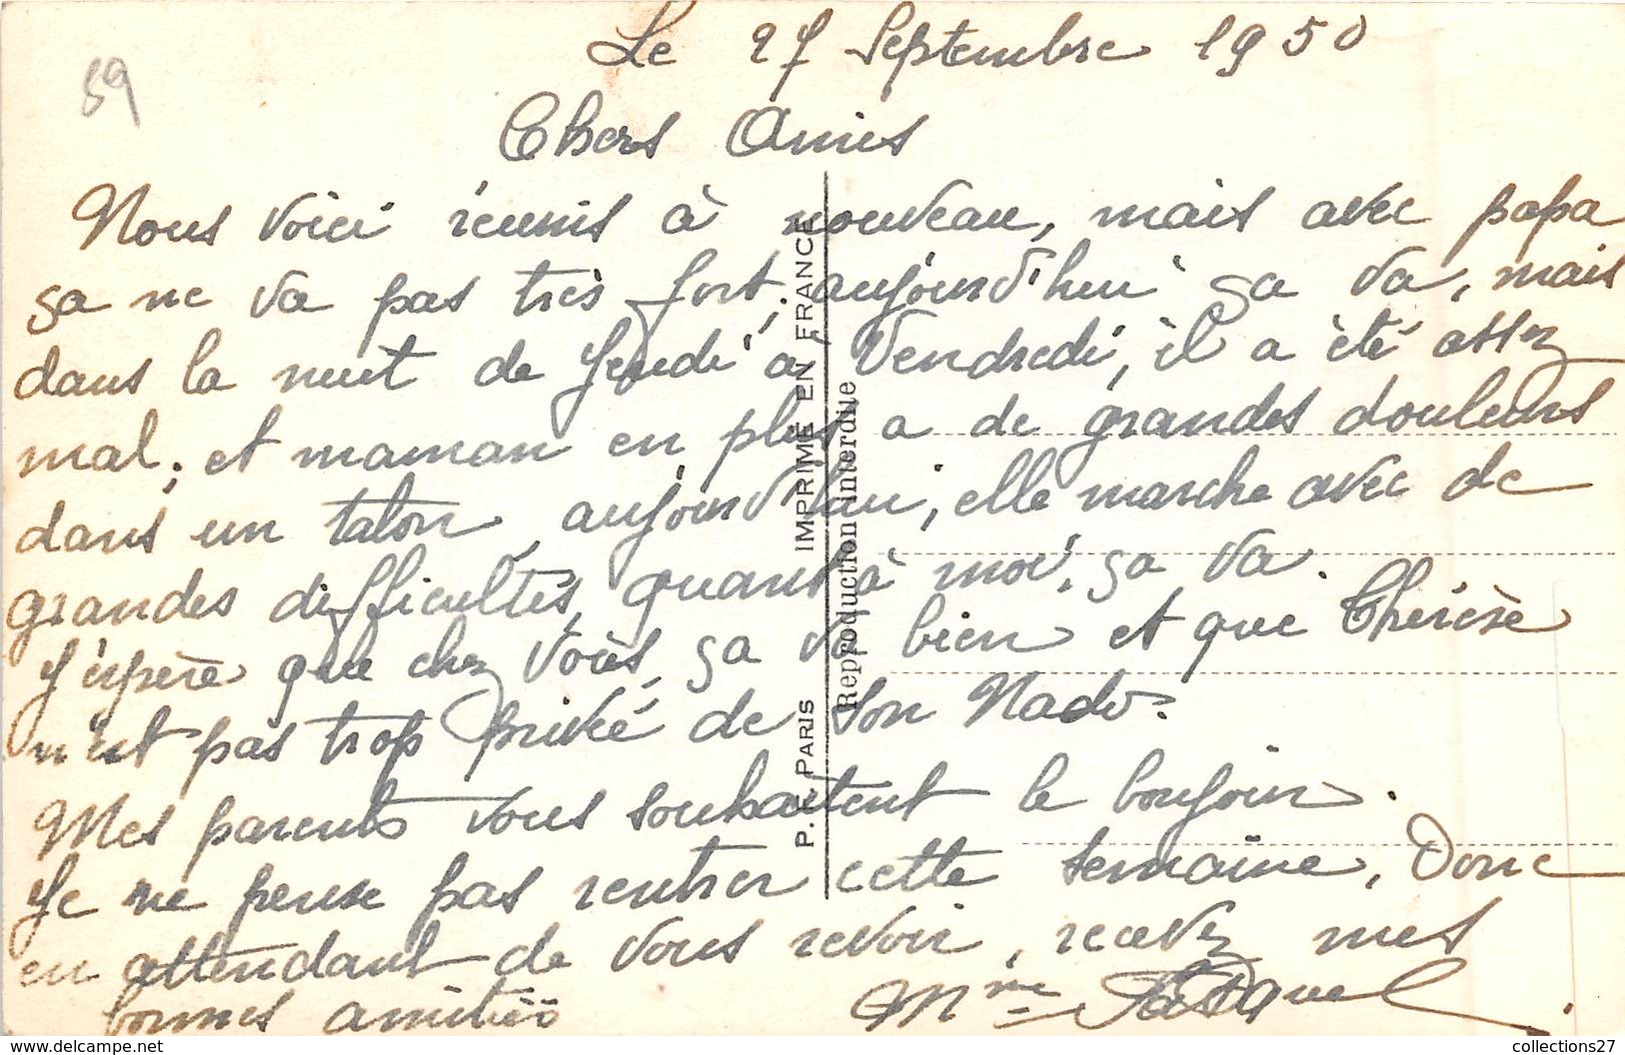 59
Le 27 Septembre 1950
Chers Amies
Nous voici réunis à nouveau, mais avec papa
ça ne va pas très fort, aujourd'hui ça va, mais
dans la nuit de Jeudi à Vendredi, il a été assez
mal, et maman en plus a de grandes douleurs
dans un talon, aujourd'hui, elle marche avec de
grandes difficultés, quant à moi, ça va.
J'espère que chez vous, ça va bien et que Thérèse
n'est pas trop privée de son Nado.
Mes parents vous souhaitent le bonjour.
Je ne pense pas rentrer cette semaine, Donc
en attendant de vous revoir, recevez mes
bonnes amitiés
Mme
P. I. PARIS IMPRIMÉ EN FRANCE
Reproduction interdite
www.delcampe.net
collections27